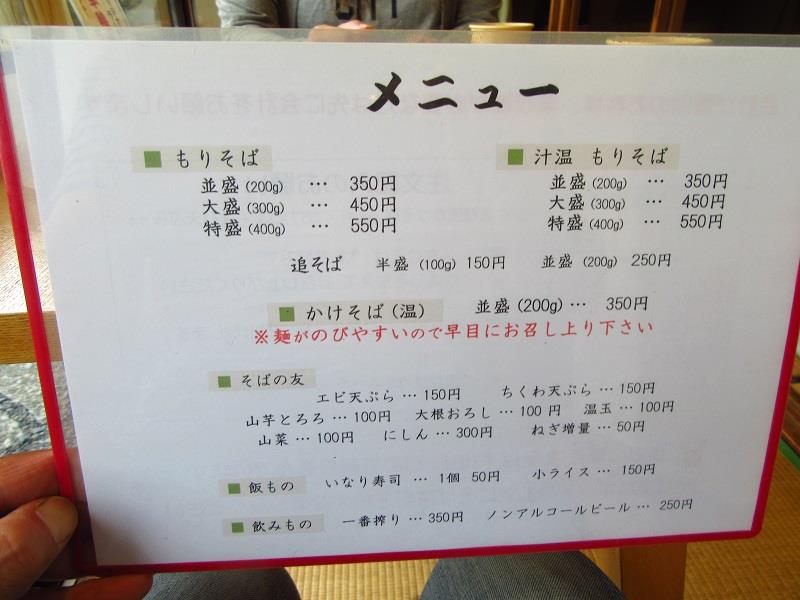 メニュー
■ もりそば
並盛 (200g) … 350円
大盛 (300g) … 450円
特盛 (400g) … 550円
■ 汁温 もりそば
並盛 (200g) … 350円
大盛 (300g) … 450円
特盛 (400g) … 550円
追そば 半盛 (100g) 150円 並盛 (200g) 250円
■ かけそば (温) 並盛 (200g) … 350円
※麺がのびやすいので早目にお召し上り下さい
■ そばの友
エビ天ぷら … 150円 ちくわ天ぷら … 150円
山芋とろろ … 100円 大根おろし … 100 円 温玉 … 100円
山菜 … 100円 にしん … 300円 ねぎ増量 … 50円
■ 飯もの いなり寿司 … 1個 50円 小ライス … 150円
■ 飲みもの 一番搾り … 350円 ノンアルコールビール … 250円